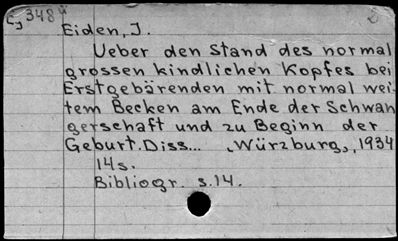 348
Eiden, J.
Ueber den Stand des normal
grossen kindlichen Kopfes bei
Erstgebärenden mit normal wei-
tem Becken am Ende der Schwan
gerschaft und zu Beginn der
Geburt. Diss... Würzburg, 1934
14s.
Bibliogr. s.14.